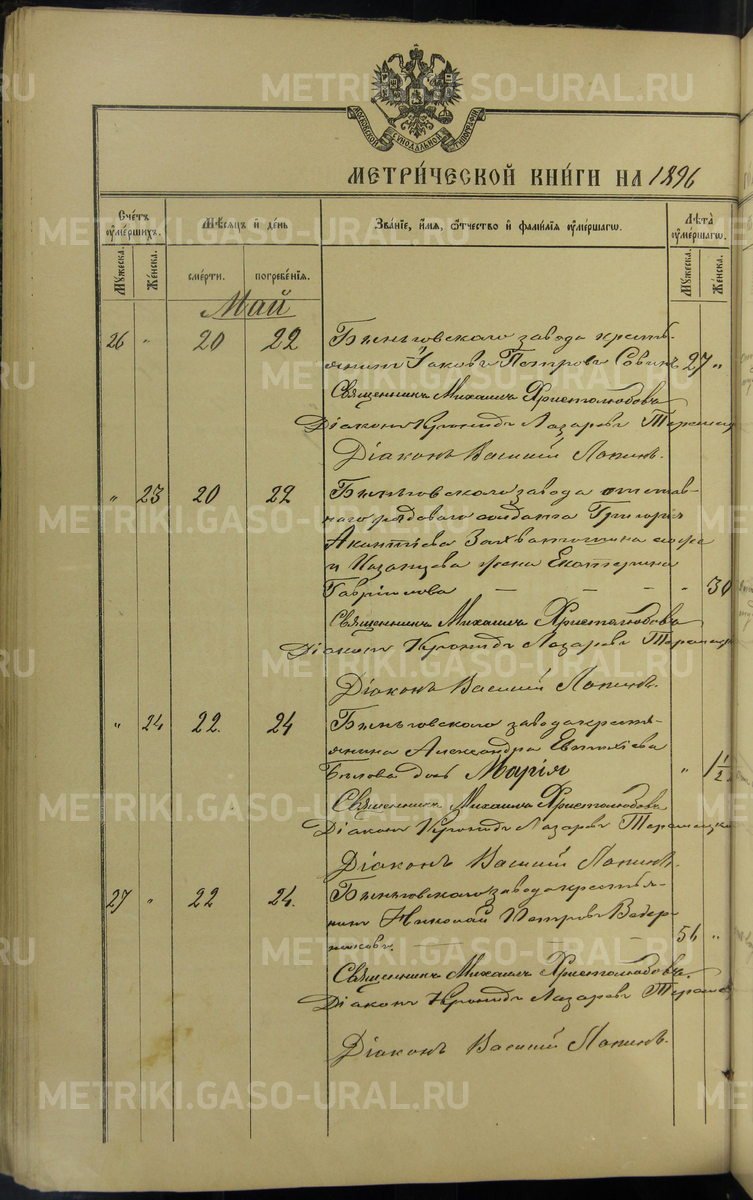 МОСКОВСКОЙ СѴНОДАЛЬНОЙ ТИПОГРАФІИ
МЕТРИ́ЧЕСКОЙ КНИ́ГИ НА 1896
Сче́тъ ᲂу҆ме́ршихъ.
Мѣ́сяцъ и҆ де́нь
Зва́нїе, и҆́мя, ѻ҆́тчество и҆ фами́лїя ᲂу҆ме́ршагѡ.
Лѣ́та ᲂу҆ме́ршагѡ.
Мꙋ́жеска.
Же́нска.
сме́рти.
погребе́нїя.
Мꙋ́жеска.
Же́нска.
Май
26 " 20 22 Быньговского завода кресть-
янинъ Іаковъ Петровъ Савинъ 27 "
Священникъ Михаилъ Христолюбовъ
Діаконъ Кронидъ Лазаревъ
Діаконъ Василій Лопинъ.
" 23 20 22 Быньговского завода отстав-
ного рядоваго солдата Григорія
Захваташина
и Казанцева жена Екатерина
Гавріилова - - - - 30
Священникъ Михаилъ Христолюбовъ
Діаконъ Кронидъ Лазаревъ
Діаконъ Василій Лопинъ.
" 24 22. 24 Быньговского завода крестья-
янина Александра Евтихіева
Бѣлова дочь Марія " 1 1/2
Священникъ Михаилъ Христолюбовъ
Діаконъ Кронидъ Лазаревъ
Діаконъ Василій Лопинъ.
27 " 22 24. Быньговского завода крестья-
нинъ Николай Петровъ Ведер-
никовъ. 56 "
Священникъ Михаилъ Христолюбовъ.
Діаконъ Кронидъ Лазаревъ
Діаконъ Василій Лопинъ.
METRIKI.GASO-URAL.RU